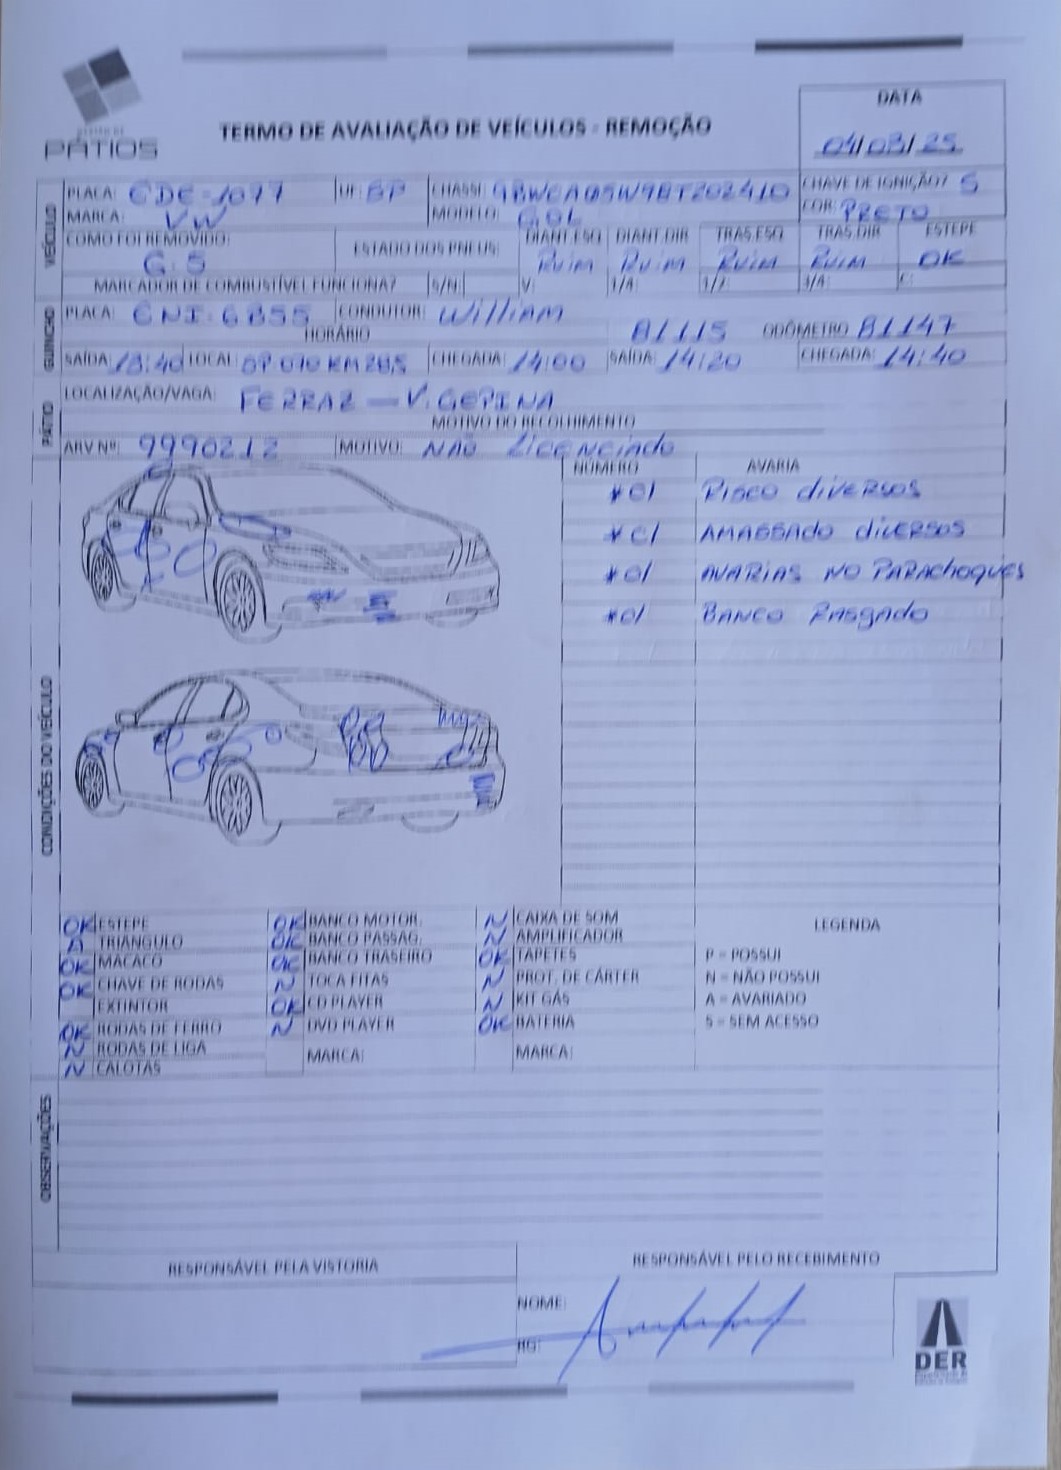 PÁTIOS
TERMO DE AVALIAÇÃO DE VEÍCULOS - REMOÇÃO
DATA
04/03/25
VEÍCULO
PLACA: CDE-1097 UF: SP CHASSI: 9BWCA05W98T202410 CHAVE DE IGNIÇÃO? S
MARCA: VW MODELO: GOL COR: PRETO
COMO FOI REMOVIDO: G.S ESTADO DOS PNEUS: DIANT.ESQ Ruim DIANT.DIR Ruim TRAS.ESQ Ruim TRAS.DIR Ruim ESTEPE OK
MARCADOR DE COMBUSTÍVEL FUNCIONA? S/N: V: 1/4: 1/2: 3/4: C:
GUINCHO
PLACA: CNI-6B55 CONDUTOR: William
HORÁRIO 81115 ODÔMETRO 81147
SAÍDA: 13:40 LOCAL: SP 070 KM 28,5 CHEGADA: 14:00 SAÍDA: 14:20 CHEGADA: 14:40
PÁTIO
LOCALIZAÇÃO/VAGA: FERRAZ — V. GEPINA
MOTIVO DO RECOLHIMENTO
ARV Nº: 9990212 MOTIVO: NÃO LICENCIADO
CONDIÇÕES DO VEÍCULO
NÚMERO AVARIA
*01 RISCO DIVERSOS
*01 AMASSADO DIVERSOS
*01 AVARIAS NO PARACHOQUES
*01 BANCO RASGADO
OK ESTEPE OK BANCO MOTOR. N CAIXA DE SOM LEGENDA
A TRIÂNGULO OK BANCO PASSAG. N AMPLIFICADOR
OK MACACO OK BANCO TRASEIRO OK TAPETES P = POSSUI
OK CHAVE DE RODAS N TOCA FITAS N PROT. DE CÁRTER N = NÃO POSSUI
EXTINTOR OK CD PLAYER N KIT GÁS A = AVARIADO
OK RODAS DE FERRO N DVD PLAYER OK BATERIA S = SEM ACESSO
N RODAS DE LIGA MARCA: MARCA:
N CALOTAS
OBSERVAÇÕES
RESPONSÁVEL PELA VISTORIA RESPONSÁVEL PELO RECEBIMENTO
NOME:
RG:
DER